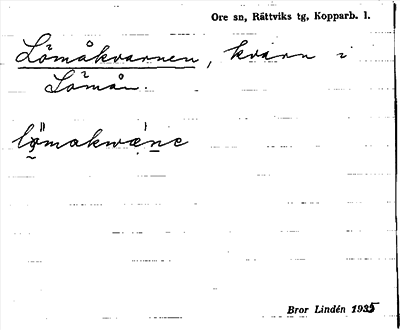 Ore sn, Rättviks tg, Kopparb. l.
Lömåkvarnen, kvarn i
Lömån.
lömakwæṇe
Bror Lindén 1935